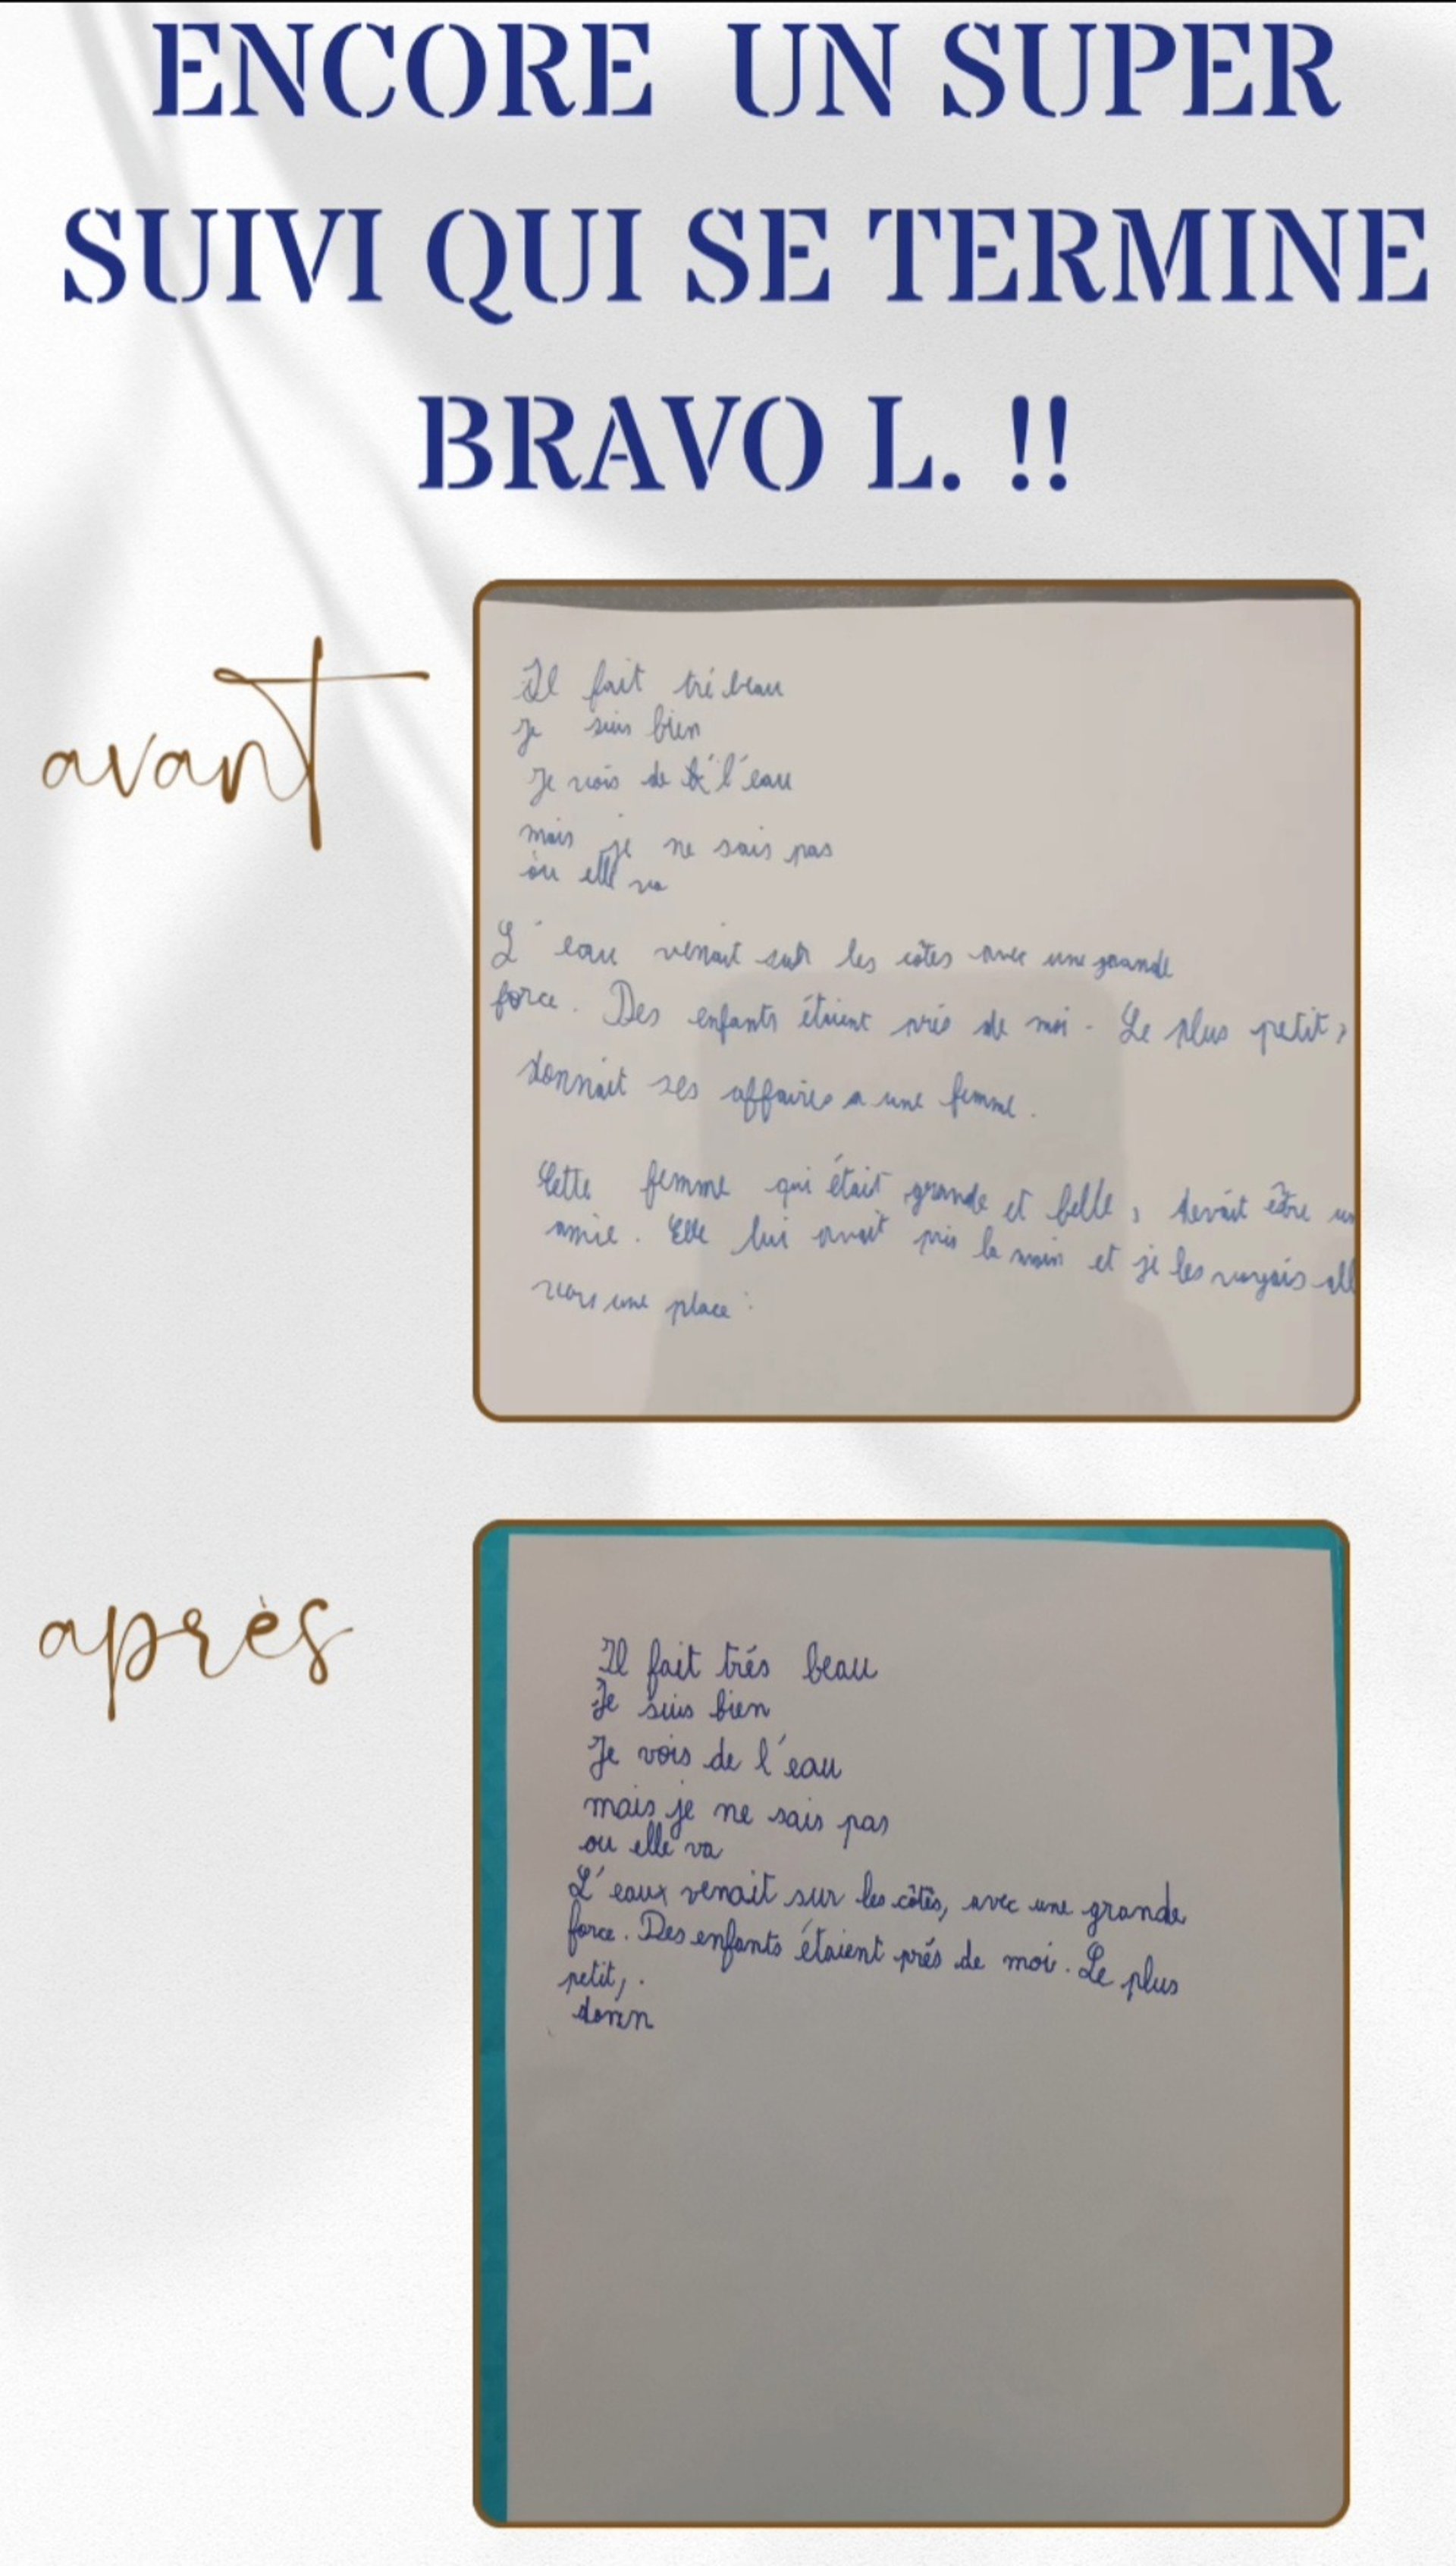 ENCORE UN SUPER
SUIVI QUI SE TERMINE
BRAVO L. !!
avant
Il fait tré beau
je suis bien
Je vois de l'eau
mais je ne sais pas
òu elle va
L'eau venait sur les côtes avec une grande
force. Des enfants étaient prés de moi. Le plus petit,
donnait ses affaires a une femme.
Cette femme qui était grande et belle, devait être un
amie. Elle lui avait pris la main et je les voyais all
vers une place.
après
Il fait trés beau
Je suis bien
Je vois de l'eau
mais je ne sais pas
ou elle va
L'eaux venait sur les côtés, avec une grande
force. Des enfants étaient prés de moi. Le plus
petit, .